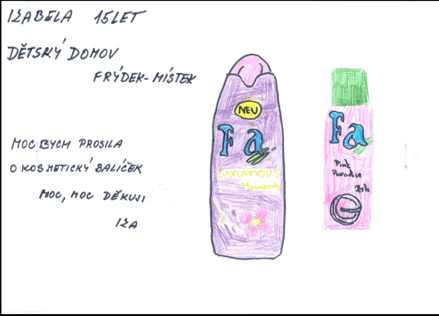 IZABELA 15LET
DĚTSKÝ DOMOV
FRÝDEK-MÍSTEK
MOC BYCH PROSILA
O KOSMETICKÝ BALÍČEK
MOC, MOC DĚKUJI
IZA
NEU
Fa
Luxurious
Moments
Fa
Pink
Paradise
24h